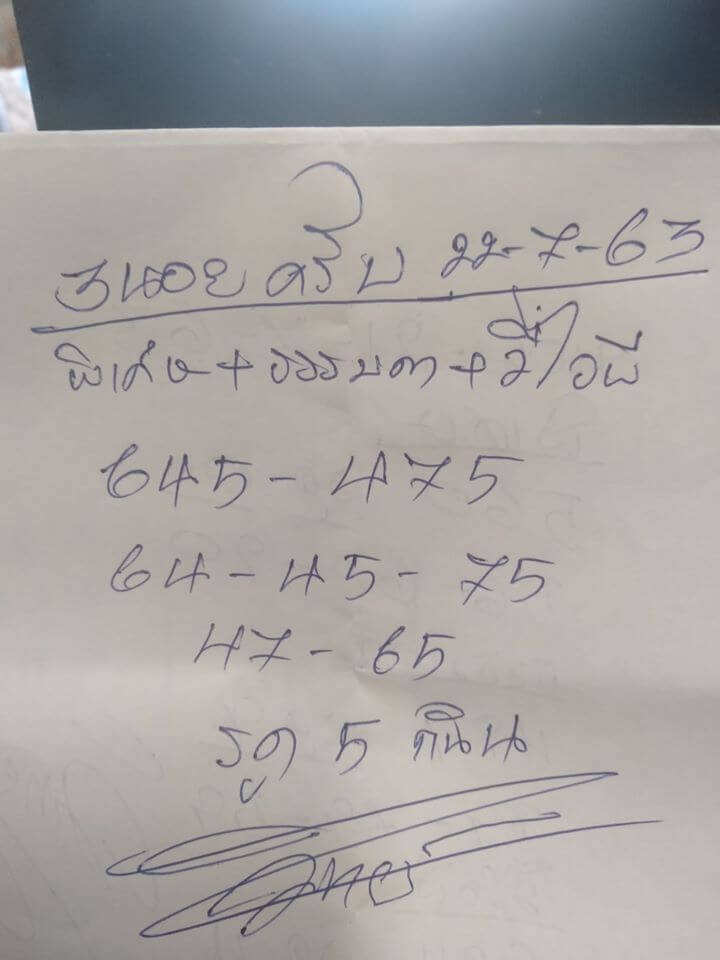 3นอย ครับ 22-7-63
พิเศษ+ธรรมดา+วีไอพี
645-475
64-45-75
47-65
รูด 5 กินน